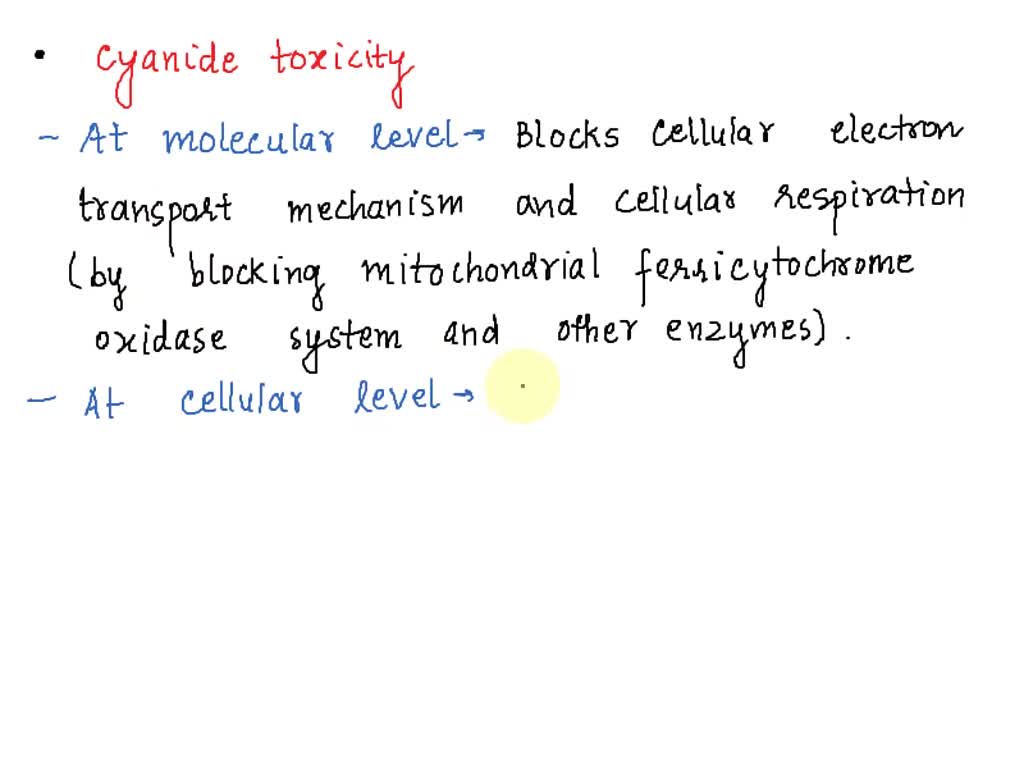 • Cyanide toxicity
- At molecular level → Blocks cellular electron
transport mechanism and cellular respiration
(by blocking mitochondrial ferricytochrome
oxidase system and other enzymes).
- At cellular level →